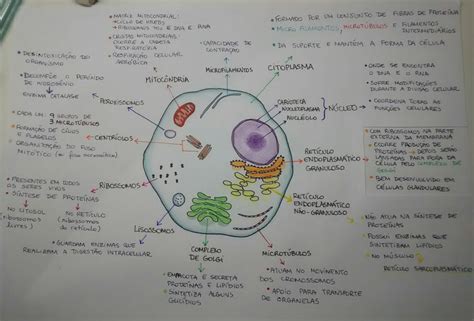 • MATRIZ MITOCONDRIAL:
CICLO DE KREBS
RIBOSSOMOS 70S E DNA E RNA
• CRISTAS MITOCONDRIAIS:
OCORRE A CADEIA
RESPIRATÓRIA
• RESPIRAÇÃO CELULAR
AERÓBICA
MITOCÔNDRIA
• CAPACIDADE DE
CONTRAÇÃO
MICROFILAMENTOS
• FORMADO POR UM CONJUNTO DE FIBRAS DE PROTEÍNA
MICROFILAMENTOS, MICROTÚBULOS E FILAMENTOS
INTERMEDIÁRIOS
• DÁ SUPORTE E MANTÉM A FORMA DA CÉLULA
CITOPLASMA
• DESINTOXICAÇÃO DO
ORGANISMO
• DECOMPÕE O PERÓXIDO
DE HIDROGÊNIO
ENZIMA CATALASE
PEROXISSOMOS
CARIOTECA
NUCLEOPLASMA
NUCLÉOLO
NÚCLEO
• ONDE SE ENCONTRA
O DNA E O RNA
• SOFRE MODIFICAÇÕES
DURANTE A DIVISÃO CELULAR
• COORDENA TODAS AS
FUNÇÕES CELULARES
• CADA UM 9 GRUPOS DE
3 MICROTÚBULOS
• FORMAÇÃO DE CÍLIOS
E FLAGELOS
• ORGANIZAÇÃO DO FUSO
MITÓTICO
CENTRÍOLOS
RETÍCULO
ENDOPLASMÁTICO
GRANULOSO
• COM RIBOSSOMOS NA PARTE
EXTERNA DA MEMBRANA
• OCORRE PRODUÇÃO DE
PROTEÍNAS
LANÇADAS PARA FORA DA
CÉLULA PELO COMPLEXO DE
GOLGI
• BEM DESENVOLVIDO EM
CÉLULAS GLANDULARES
• PRESENTES EM TODOS
OS SERES VIVOS
• SÍNTESE DE PROTEÍNAS
NO CITOSOL NO RETÍCULO
(RIBOSSOMOS (RIBOSSOMOS
LIVRES) DE RETÍCULO)
RIBOSSOMOS
RETÍCULO
ENDOPLASMÁTICO
NÃO-GRANULOSO
• NÃO AGUA NA SÍNTESE DE
PROTEÍNAS
• POSSUI ENZIMAS QUE
SINTETIZAM LIPÍDIOS
• NO MÚSCULO
RETÍCULO SARCOPLASMÁTICO
LISOSSOMOS
• GUARDAM ENZIMAS QUE
REALIZAM A DIGESTÃO INTRACELULAR
COMPLEXO
DE GOLGI
• EMPACOTA E SECRETA
PROTEÍNAS E LIPÍDIOS
• SINTETIZA ALGUNS
GLICÍDIOS
MICROTÚBULOS
• ATUAM NO MOVIMENTO
DOS CROMOSSOMOS
• APOIO PARA TRANSPORTE
DE ORGANELAS